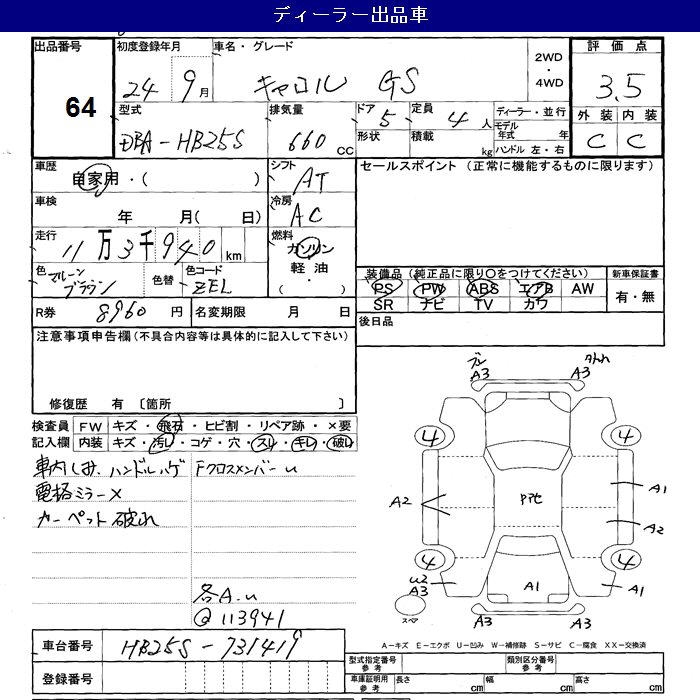 ディーラー出品車
出品番号 64
初度登録年月 24 9月
車名・グレード キャロル GS
2WD・4WD
評価点 3.5
型式 DBA-HB25S
排気量 660 cc
ドア 5
定員 4人
形状
積載 kg
ディーラー・並行
モデル年式 年
ハンドル 左・右
外装 C
内装 C
車歴 自家用・( )
シフト AT
セールスポイント (正常に機能するものに限ります)
車検 年 月( 日)
冷房 AC
走行 11万3千940km
燃料 ガソリン 軽油・( )
色 マルーンブラウン
色替
色コード ZEL
装備品 (純正品に限り〇をつけてください)
PS PW ABS エアB AW
SR ナビ TV カワ
新車保証書 有・無
R券 8960円
名変期限 月 日
後日品
注意事項申告欄(不具合内容等は具体的に記入して下さい)
修復歴 有 〔箇所 〕
検査員記入欄
FW キズ・飛石・ヒビ割・リペア跡・×要
内装 キズ・汚レ・コゲ・穴・スレ・キレ・破レ
車内しみ、ハンドルハゲ
Fクロスメンバーu
電格ミラー×
カーペット破れ
各A.u
@113941
A3 A3
4 4
A2
Pアセ
A1
A2
4 4
U2
A3
スペア
A1
A1
A3 A3
A-キズ E-エクボ U-凹み W-補修跡 S-サビ C-腐食 XX-交換済
車台番号 HB25S-731419
登録番号
型式指定番号 参考
類別区分番号 参考
車庫証明用 参考 長さ cm 幅 cm 高さ cm